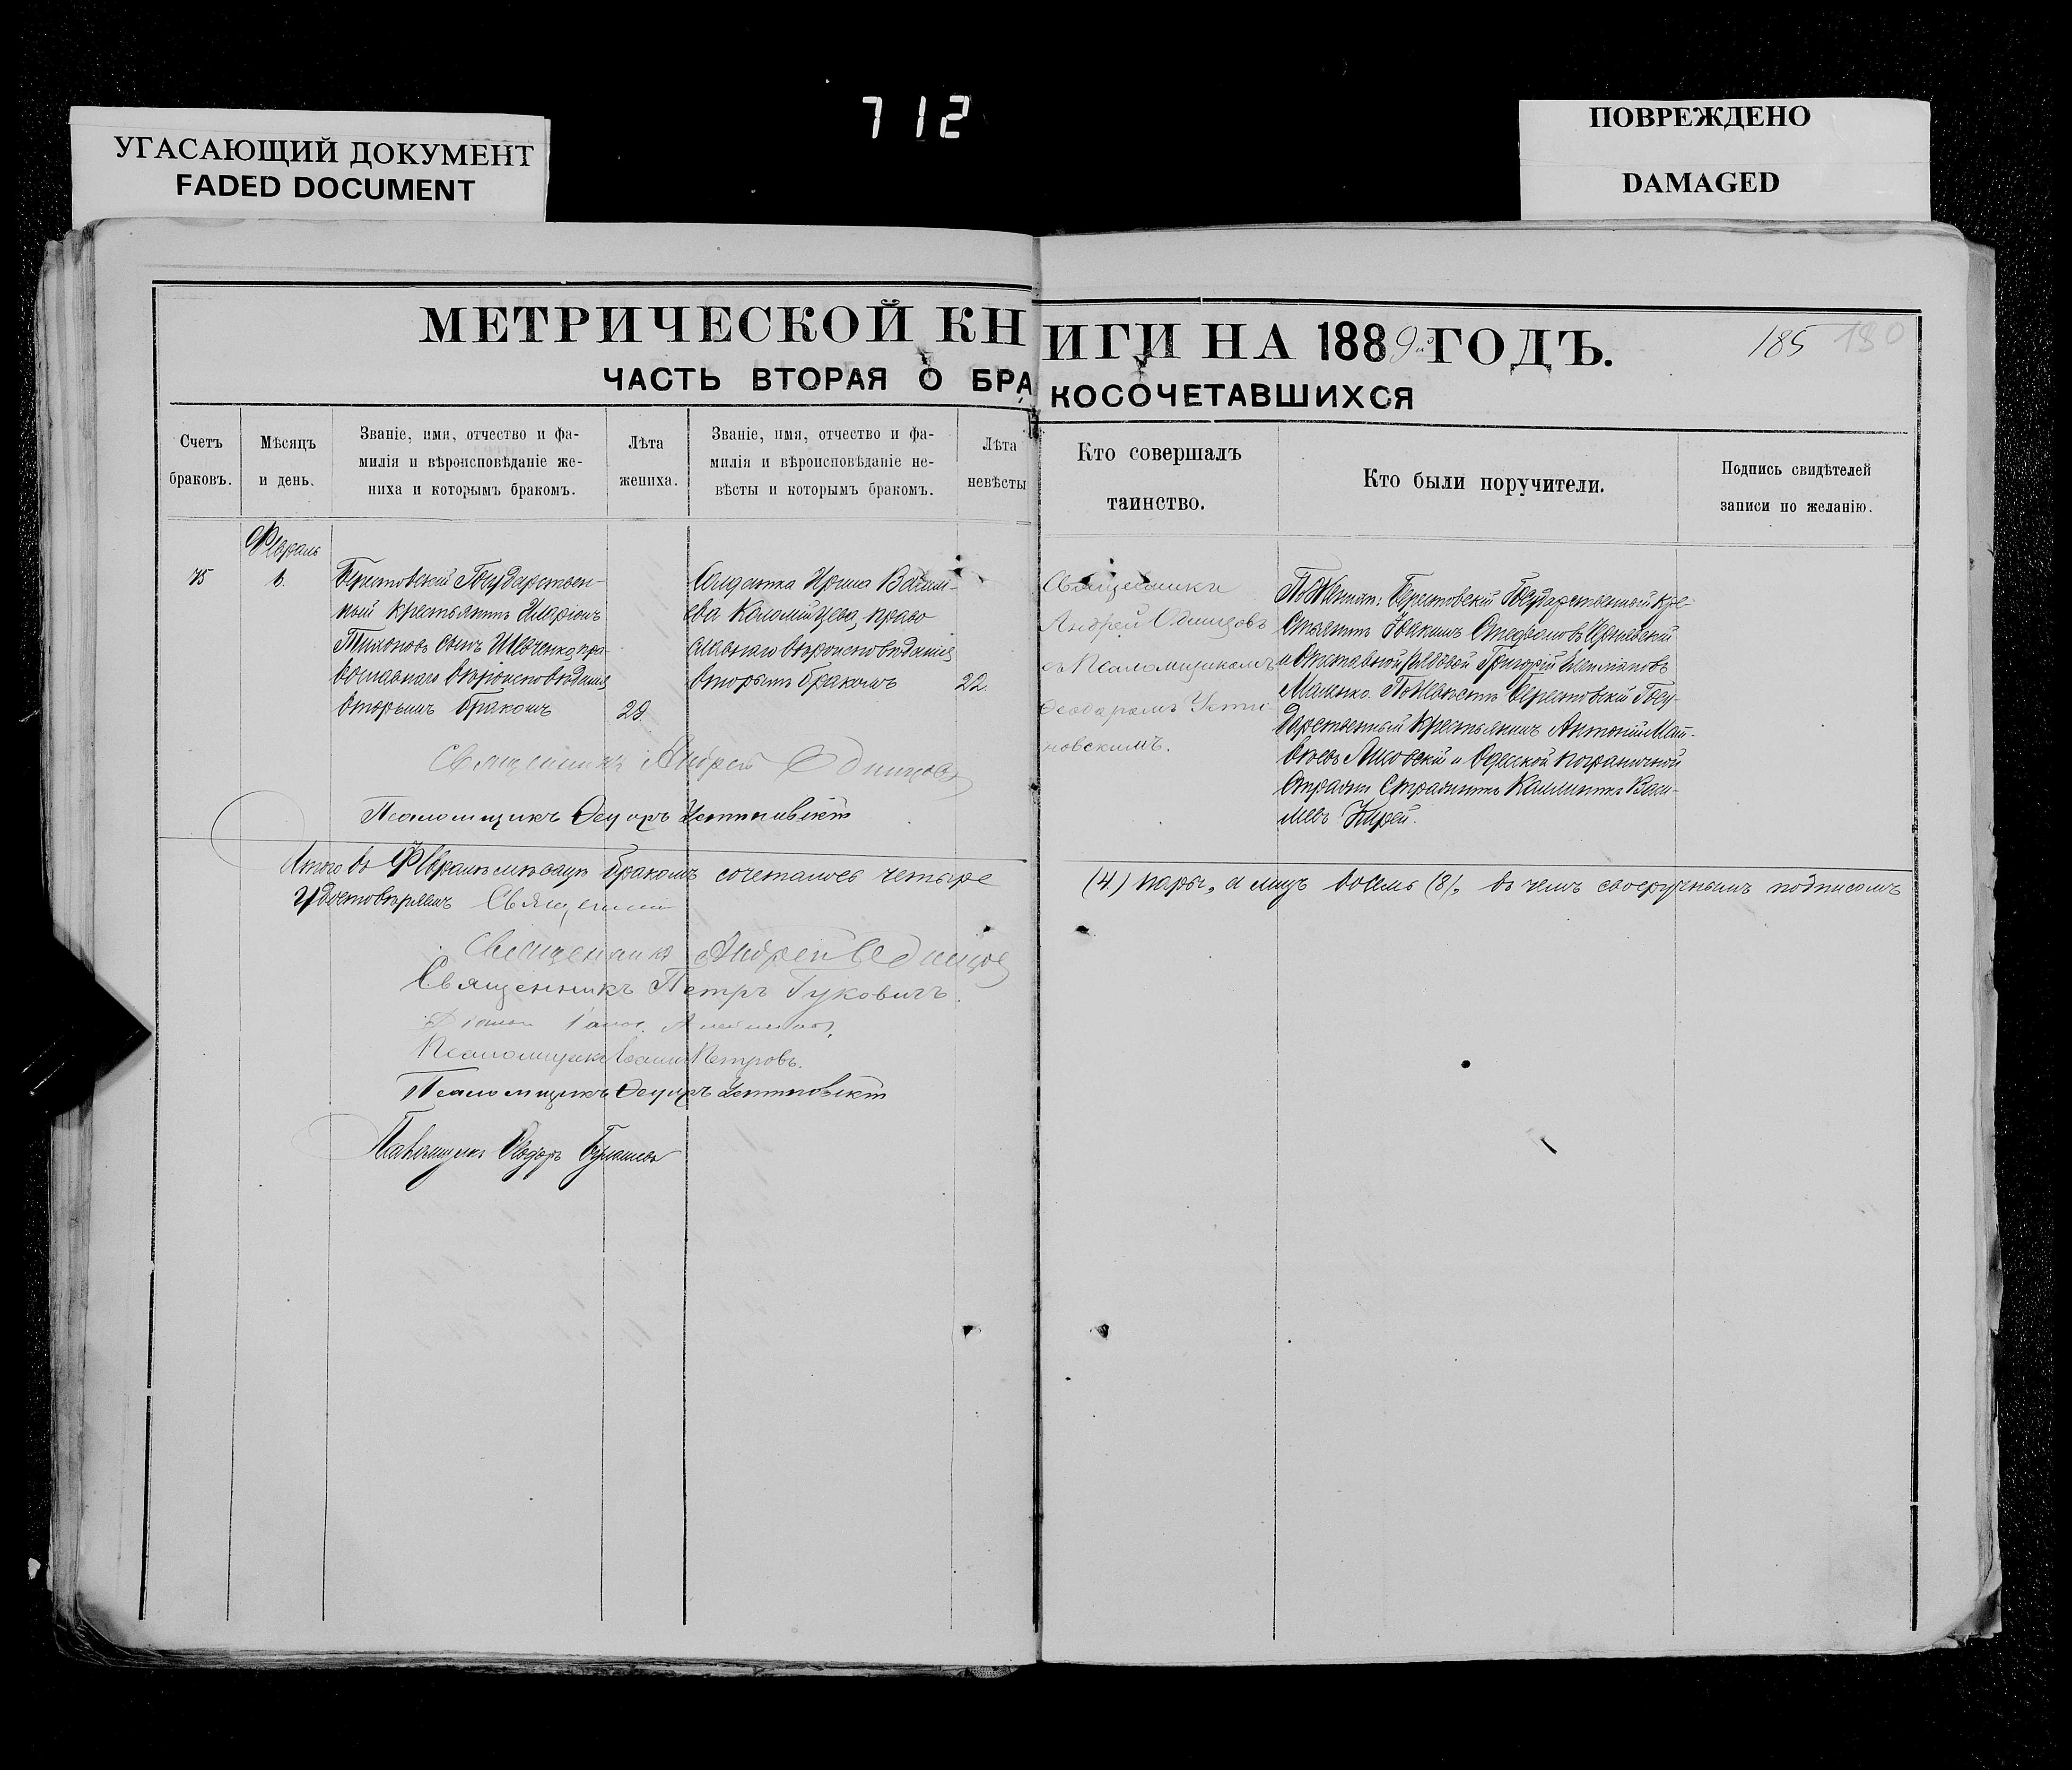 712
УГАСАЮЩИЙ ДОКУМЕНТ
FADED DOCUMENT
ПОВРЕЖДЕНО
DAMAGED
МЕТРИЧЕСКОЙ КНИГИ НА 1889й ГОДЪ.
185 180
ЧАСТЬ ВТОРАЯ О БРАКОСОЧЕТАВШИХСЯ
Счетъ
браковъ.
Мѣсяцъ
и день.
Званіе, имя, отчество и фа-
милія и вѣроисповѣданіе же-
ниха и которымъ бракомъ.
Лѣта
жениха.
Званіе, имя, отчество и фа-
милія и вѣроисповѣданіе не-
вѣсты и которымъ бракомъ.
Лѣта
невѣсты
Кто совершалъ
таинство.
Кто были поручители.
Подпись свидѣтелей
записи по желанію.
Февраль
Берестовскій Государствен-
ный крестьянинъ Иларіонъ
Тихоновъ сынъ Шевченко, пра-
вославнаго вѣроисповѣданія
вторымъ бракомъ
28
Солдатка Ирина Васил-
ева Коломійцева, право
славнаго вѣроисповѣданія
вторымъ бракомъ
22.
Священникъ
Андрей Одинцовъ
съ Псаломщикомъ
Ѳеодоромъ Усти
новскимъ.
По Женихѣ: Берестовскій Государственный кре-
стьянинъ Іоакимъ Стефановъ
и Отставной рядовой Григорій
По Невѣстѣ Берестовскій Госу-
дарственный Крестьянинъ Антоній Мат-
вѣевъ Лисовскій и Одесской пограничной
Стражи Стражникъ Каллиникъ Васи-
льевъ Кирей.
Священникъ Андрей Одинцовъ
Псаломщикъ Ѳеодоръ Устиновскій
Итого въ Февралѣ мѣсяцѣ бракомъ сочеталось четыре
(4) пары, а лицъ восемь (8), въ чемъ своеручнымъ подписомъ
Удостовѣряемъ Священни
Священникъ Андрей Одинцов
Священникъ Петръ Гуковичъ.
Псаломщикъ Іоаннъ Петровъ.
Псаломщикъ Ѳеодоръ Устиновскій
Ѳеодоръ